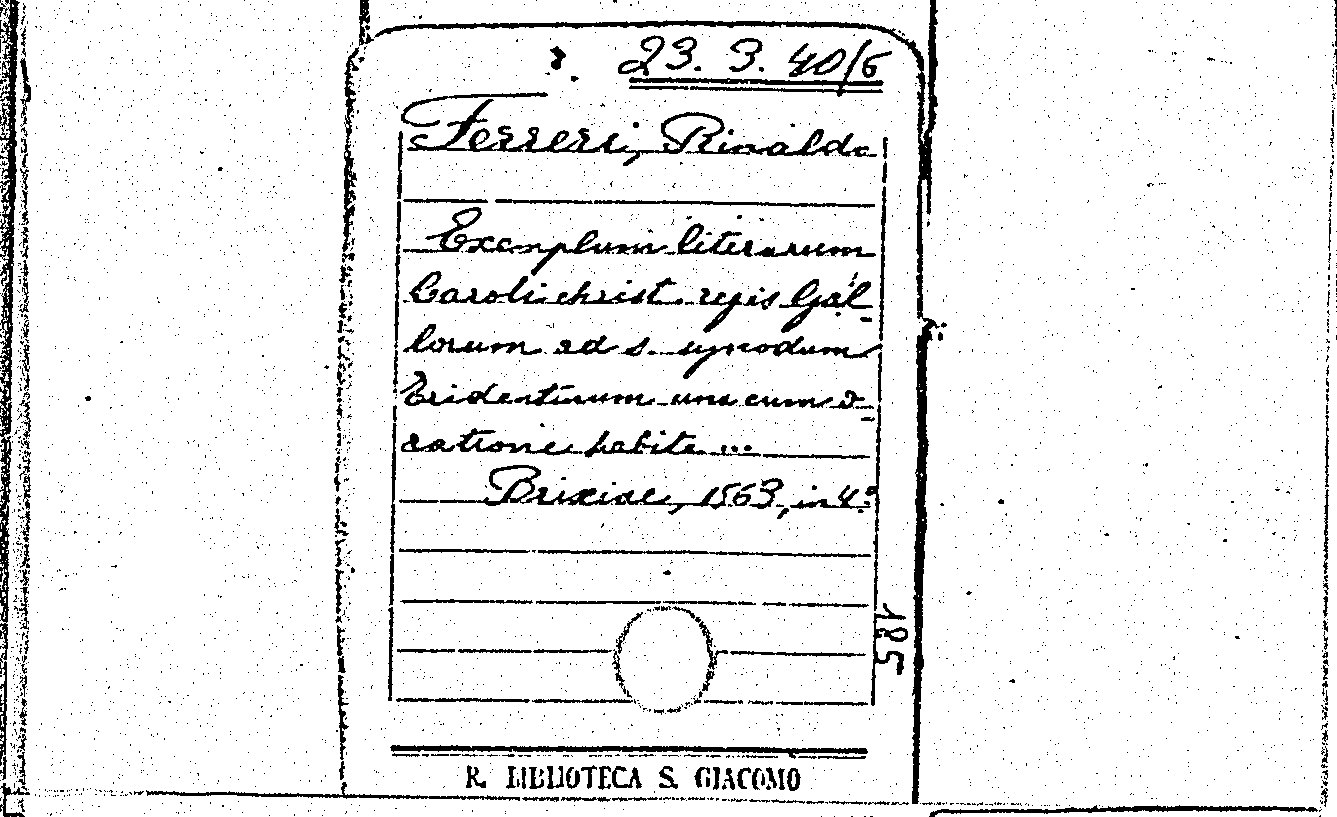 23. 3. 40/6
Ferreri, Rinaldo
Exemplum literarum
Caroli christ. regis Gal-
lorum ad s. synodum
Tridentinum una cum o-
ratione habita ...
Brixiae, 1563, in 4.º
185
R. BIBLIOTECA S. GIACOMO